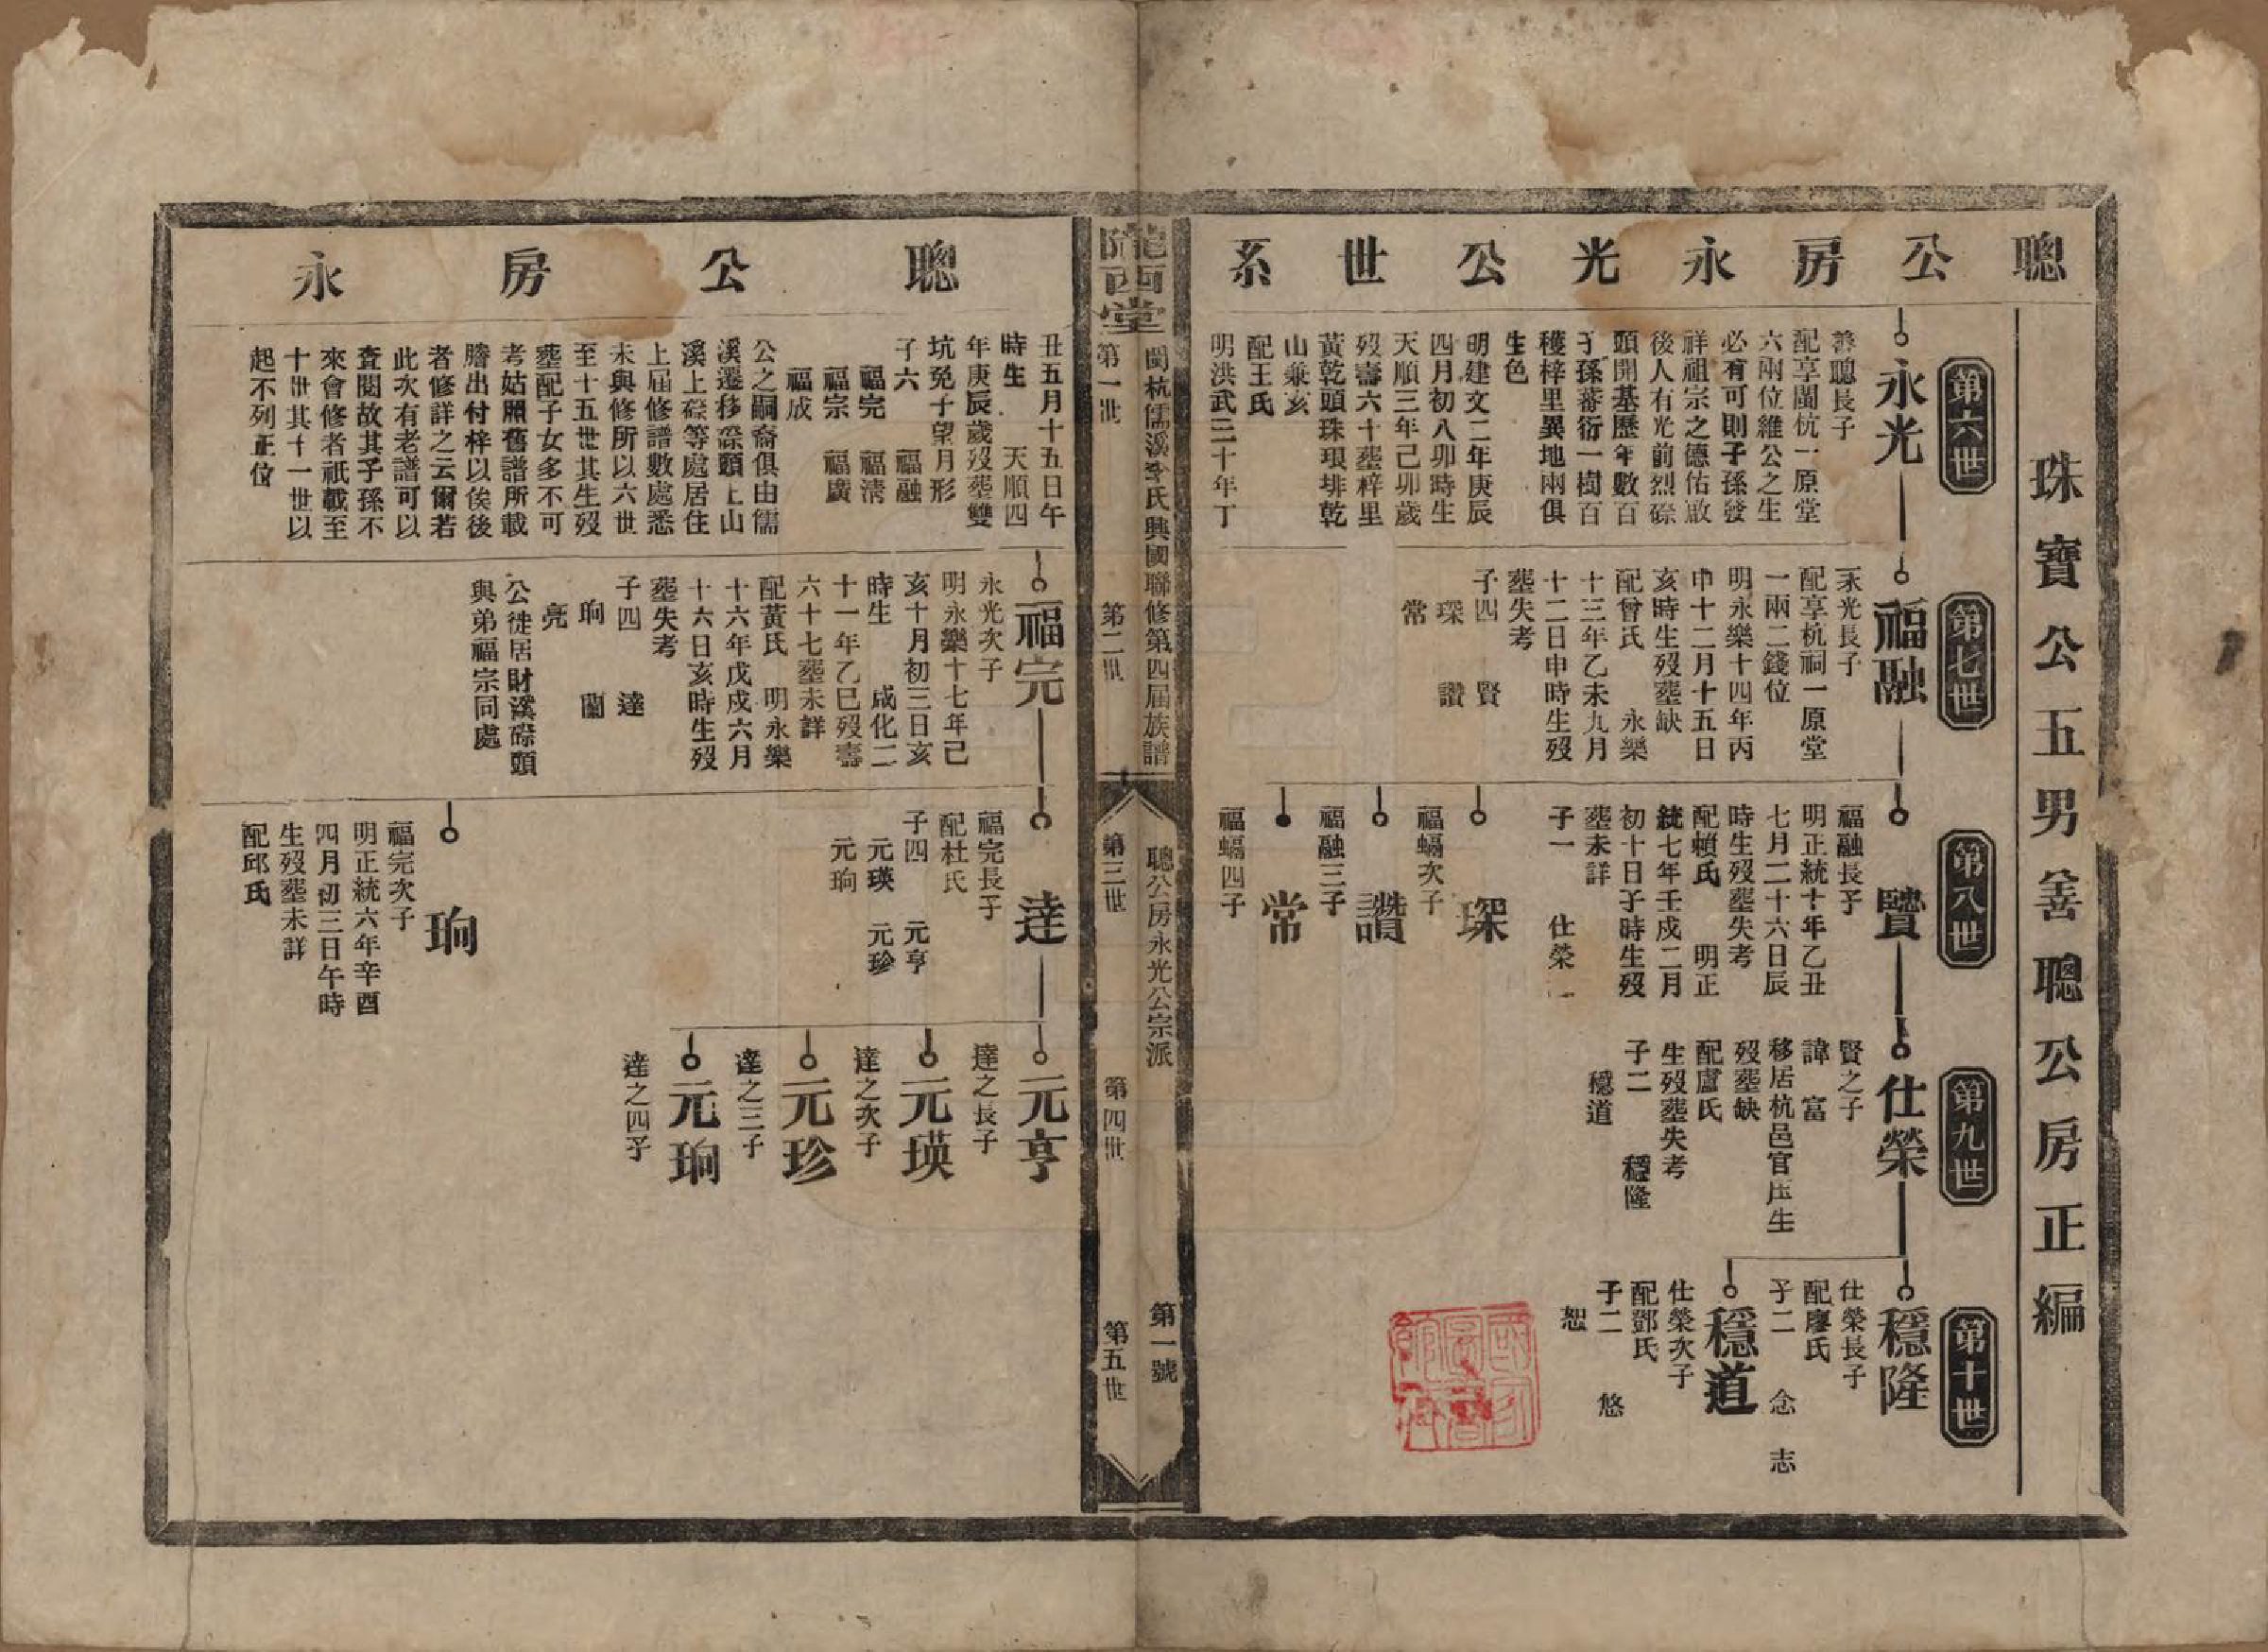 珠寶公五男善聰公房正編
聰公房永光公世系
第六世
永光
善聰長子
配享閩杭一原堂
六兩位維公之生
必有可則子孫發
祥祖宗之德佑啟
後人有光前烈磜
頭開基歷年數百
子孫蕃衍一樹百
穫梓里異地兩俱
生色
明建文二年庚辰
四月初八卯時生
天順三年己卯歲
歿壽六十塟梓里
黃乾頭珠琅排乾
山兼亥
配王氏
明洪武三十年丁
第七世
福融
永光長子
配享杭祠一原堂
一兩二錢位
明永樂十四年丙
申十二月十五日
亥時生歿塟缺
配曾氏　永樂
十三年乙未九月
十二日申時生歿
塟失考
子四　賢
琛　讚
常
第八世
賢
福融長子
明正統十年乙丑
七月二十六日辰
時生歿塟失考
配賴氏　明正
統七年壬戌二月
初十日子時生歿
塟未詳
子一　仕榮
琛
福融次子
讚
福融三子
常
福融四子
第九世
仕榮
賢之子
諱富
移居杭邑官庄生
歿塟缺
配盧氏
生歿塟失考
子二　穩隆
穩道
第十世
穩隆
仕榮長子
配廖氏
子二　念　志
穩道
仕榮次子
配鄧氏
子二　悠
恕
隴西堂
閩杭儒溪李氏興國聯修第四屆族譜
聰公房永光公宗派
第一號
第一世
第二世
第三世
第四世
第五世
聰公房永
丑五月十五日午
時生　天順四
年庚辰歲歿塟雙
坑兔子望月形
子六　福融
福完　福清
福宗　福廣
福成
公之嗣裔俱由儒
溪遷移磜頭上山
溪上磜等處居住
上屆修譜數處悉
未與修所以六世
至十五世其生歿
塟配子女多不可
考姑照舊譜所載
謄出付梓以俟後
者修詳之云爾若
此次有老譜可以
查閱故其子孫不
來會修者祇載至
十世其十一世以
起不列正位
福完
永光次子
明永樂十七年己
亥十月初三日亥
時生　成化二
十一年乙巳歿壽
六十七塟未詳
配黃氏　明永樂
十六年戊戌六月
十六日亥時生歿
塟失考
子四　達
珦　蘭
亮
公徙居財溪磜頭
與弟福宗同處
達
福完長子
配杜氏
子四　元亨
元瑛　元珍
元珦
珦
福完次子
明正統六年辛酉
四月初三日午時
生歿塟未詳
配邱氏
元亨
達之長子
元瑛
達之次子
元珍
達之三子
元珦
達之四子